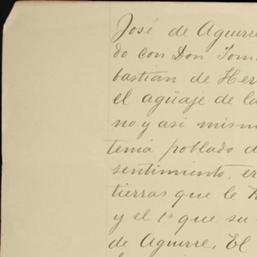 José de Aguirre
do con Don Tom
bastian de Her
el agüaje de la
no y asi mism
tenia poblado d
sentimiento, er
tierras que le h
y el 1º que su
de Aguirre, El